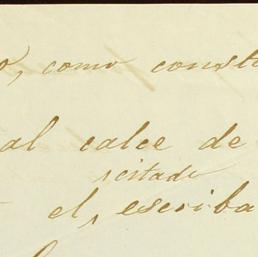 o, como consta
al calce de
citado
el, escriba